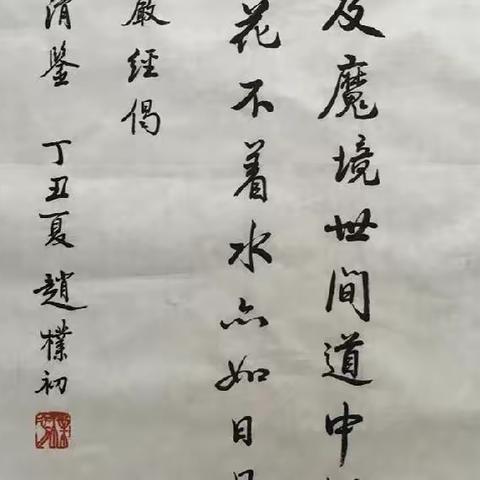 及魔境世间道中
花不着水亦如日
严经偈
清鉴 丁丑夏 赵朴初